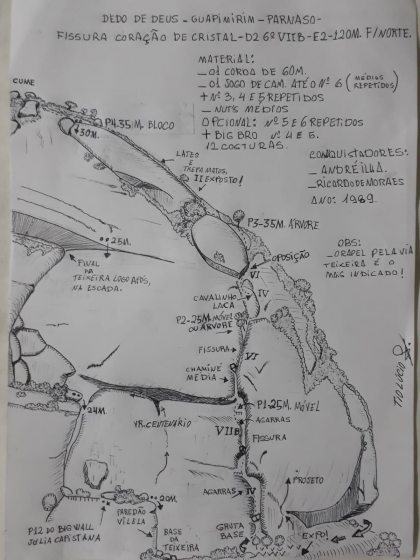 DEDO DE DEUS - GUAPIMIRIM - PARNASO -
FISSURA CORAÇÃO DE CRISTAL - D2 6º VIIB - E2 - 120M. F/NORTE.
MATERIAL:
_ 01 CORDA DE 60M.
_ 01 JOGO DE CAM. ATÉ O Nº 6 (MÉDIOS REPETIDOS)
+ Nº 3, 4 E 5 REPETIDOS
_ NUTS MÉDIOS
OPCIONAL: Nº 5 E 6 REPETIDOS
+ BIG BRO Nº 4 E 5.
12 COSTURAS.
CONQUISTADORES:
_ ANDRÉ ILHA.
_ RICARDO DE MORAES
ANO: 1989.
OBS:
_ O RAPEL PELA VIA
TEIXEIRA É O
MAIS INDICADO!
CUME
P4.35M. BLOCO
30M.
LATEO
E
TREPA MATOS.
II EXPOSTO!
P3-35M. ÁRVORE
25M.
OPOSIÇÃO
VI
FINAL
DA
TEIXEIRA LOGO APÓS,
NA ESCADA.
CAVALINHO
LACA
IV
P2-25M. MÓVEL
OU ÁRVORE
FISSURA
VI
CHAMINÉ
MÉDIA
24M.
1R. CENTENÁRIO
P1-25M. MÓVEL
AGARRAS
VIIB
FISSURA
PROJETO
AGARRAS
IV
20M.
PAREDÃO
VILELA
P12 DO BIG WALL
JULIA CAPISTANA
BASE
DA
TEIXEIRA
GRUTA
BASE
EXPO!
TIO LUCIO